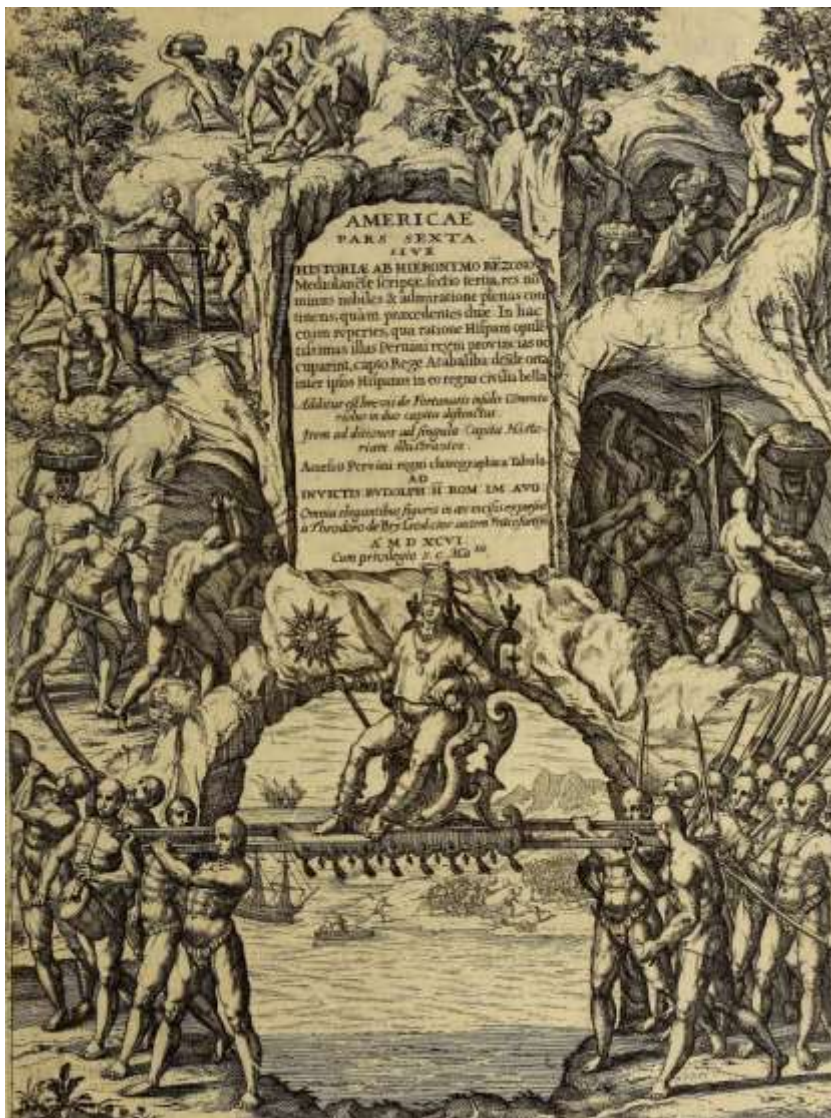 AMERICAE
PARS SEXTA.
SIVE
HISTORIÆ AB HIERONYMO BEZONO
Mediolanēse scriptæ, sectio tertia, res nō
minus nobiles & admiratione plenas con
tinens, quàm præcedentes duæ. In hac
enim reperies, qua ratione Hispani opulē
tissimas illas Peruani regni provincias oc
cuparint, capto Rege Atabaliba: deīde orta
inter ipsos Hispanos in eo regno civilia bella
Additus est brevis de Fortunatis insulis Cōmenta
riolus in duo capita distinctus.
Item additiones ad singula Capita Histo
riam illustrantes.
Accessit Peruani regni chorographica Tabula.
AD
INVICTIS. RUDOLPH. II ROM. IM. AUG
Omnia elegantibus figuris in æs incisis expressa
à Theodoro de Bry
A͞. M D XCVI
Cum privilegio S. C. Ma